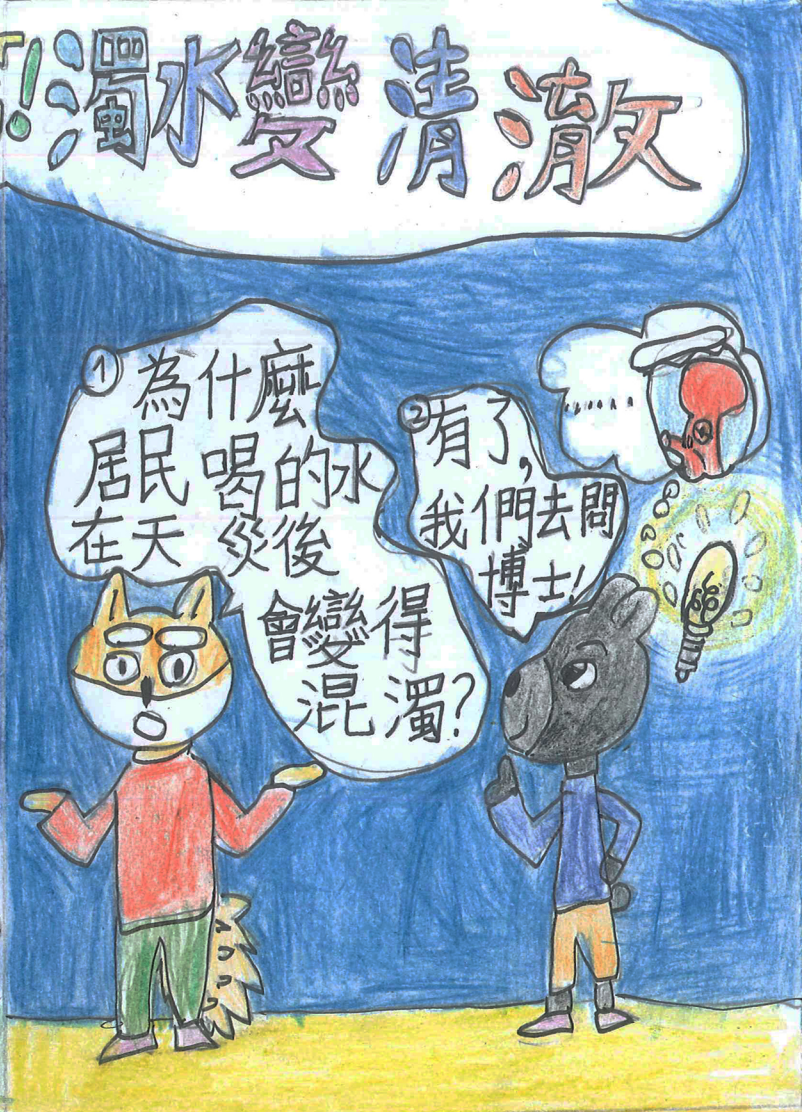 !濁水變清澈
①為什麼
居民喝的水
在天災後
會變得
混濁?
②有了,
我們去問
博士!